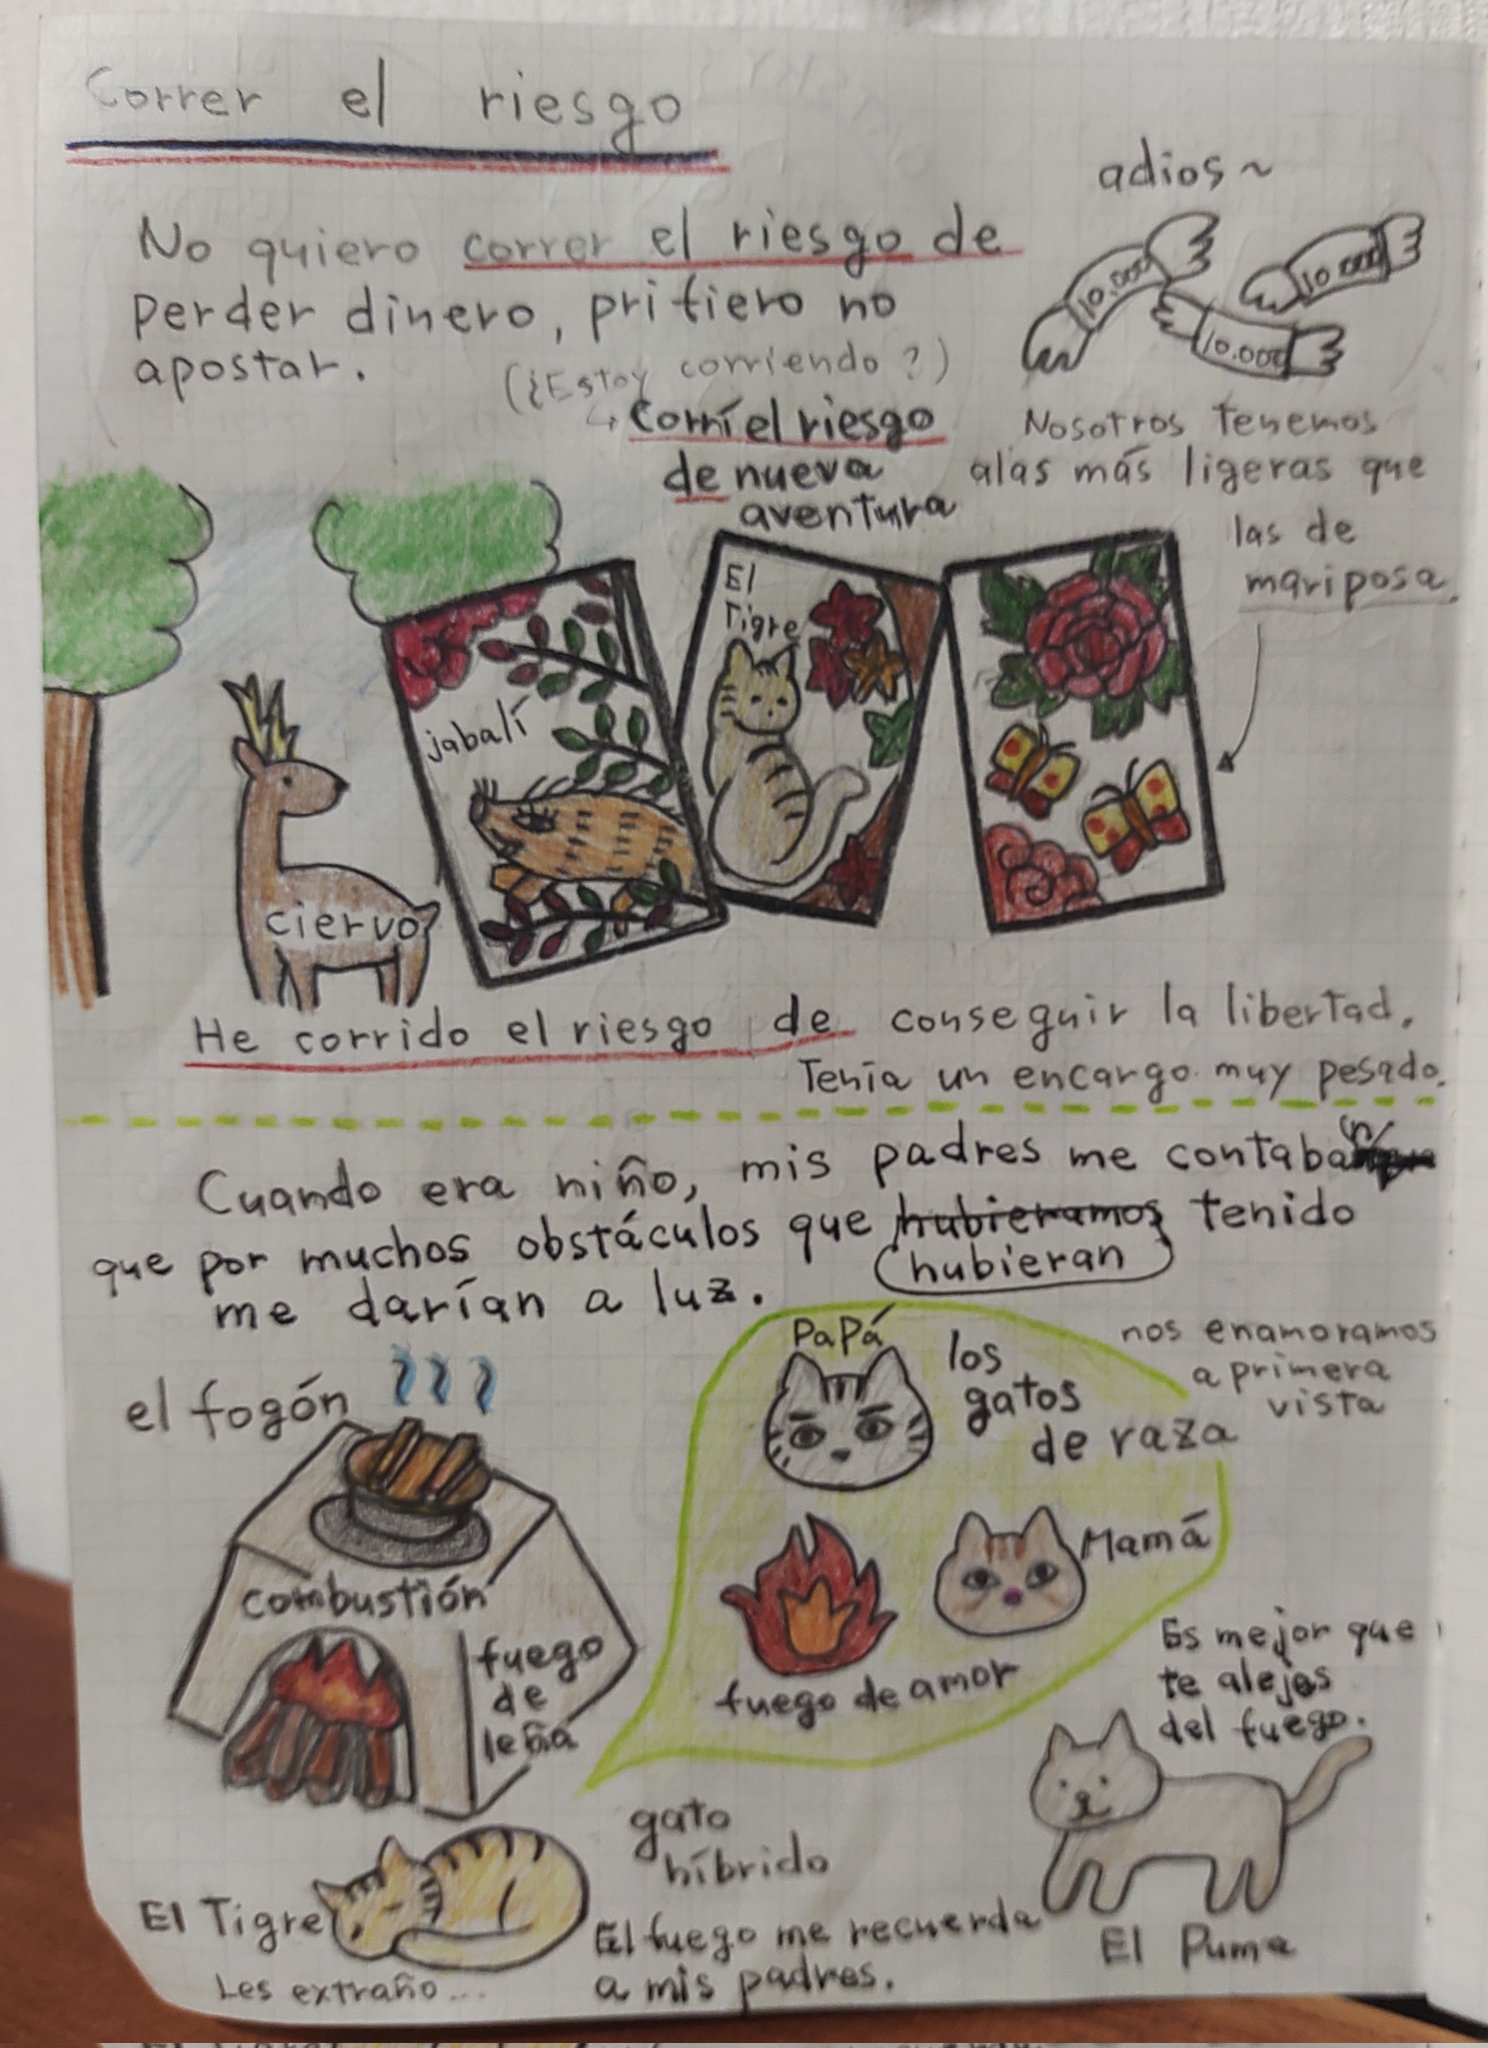 Correr el riesgo
No quiero correr el riesgo de
perder dinero, prifiero no
apostar.
(¿Estoy corriendo?)
Corrí el riesgo
de nueva
aventura
adios~
10,000
10.000
10.000
Nosotros tenemos
alas más ligeras que
las de
mariposa.
jabalí
El
Tigre
ciervo
He corrido el riesgo de conseguir la libertad.
Tenía un encargo muy pesado.
Cuando era niño, mis padres me contaban
que por muchos obstáculos que hubieramos tenido
hubieran
me darían a luz.
el fogón
combustión
fuego
de
leña
Papá
los
gatos
de raza
nos enamoramos
a primera
vista
Mamá
fuego de amor
Es mejor que
te alejes
del fuego.
gato
híbrido
El Tigre
Les extraño...
El fuego me recuerda
a mis padres.
El Puma